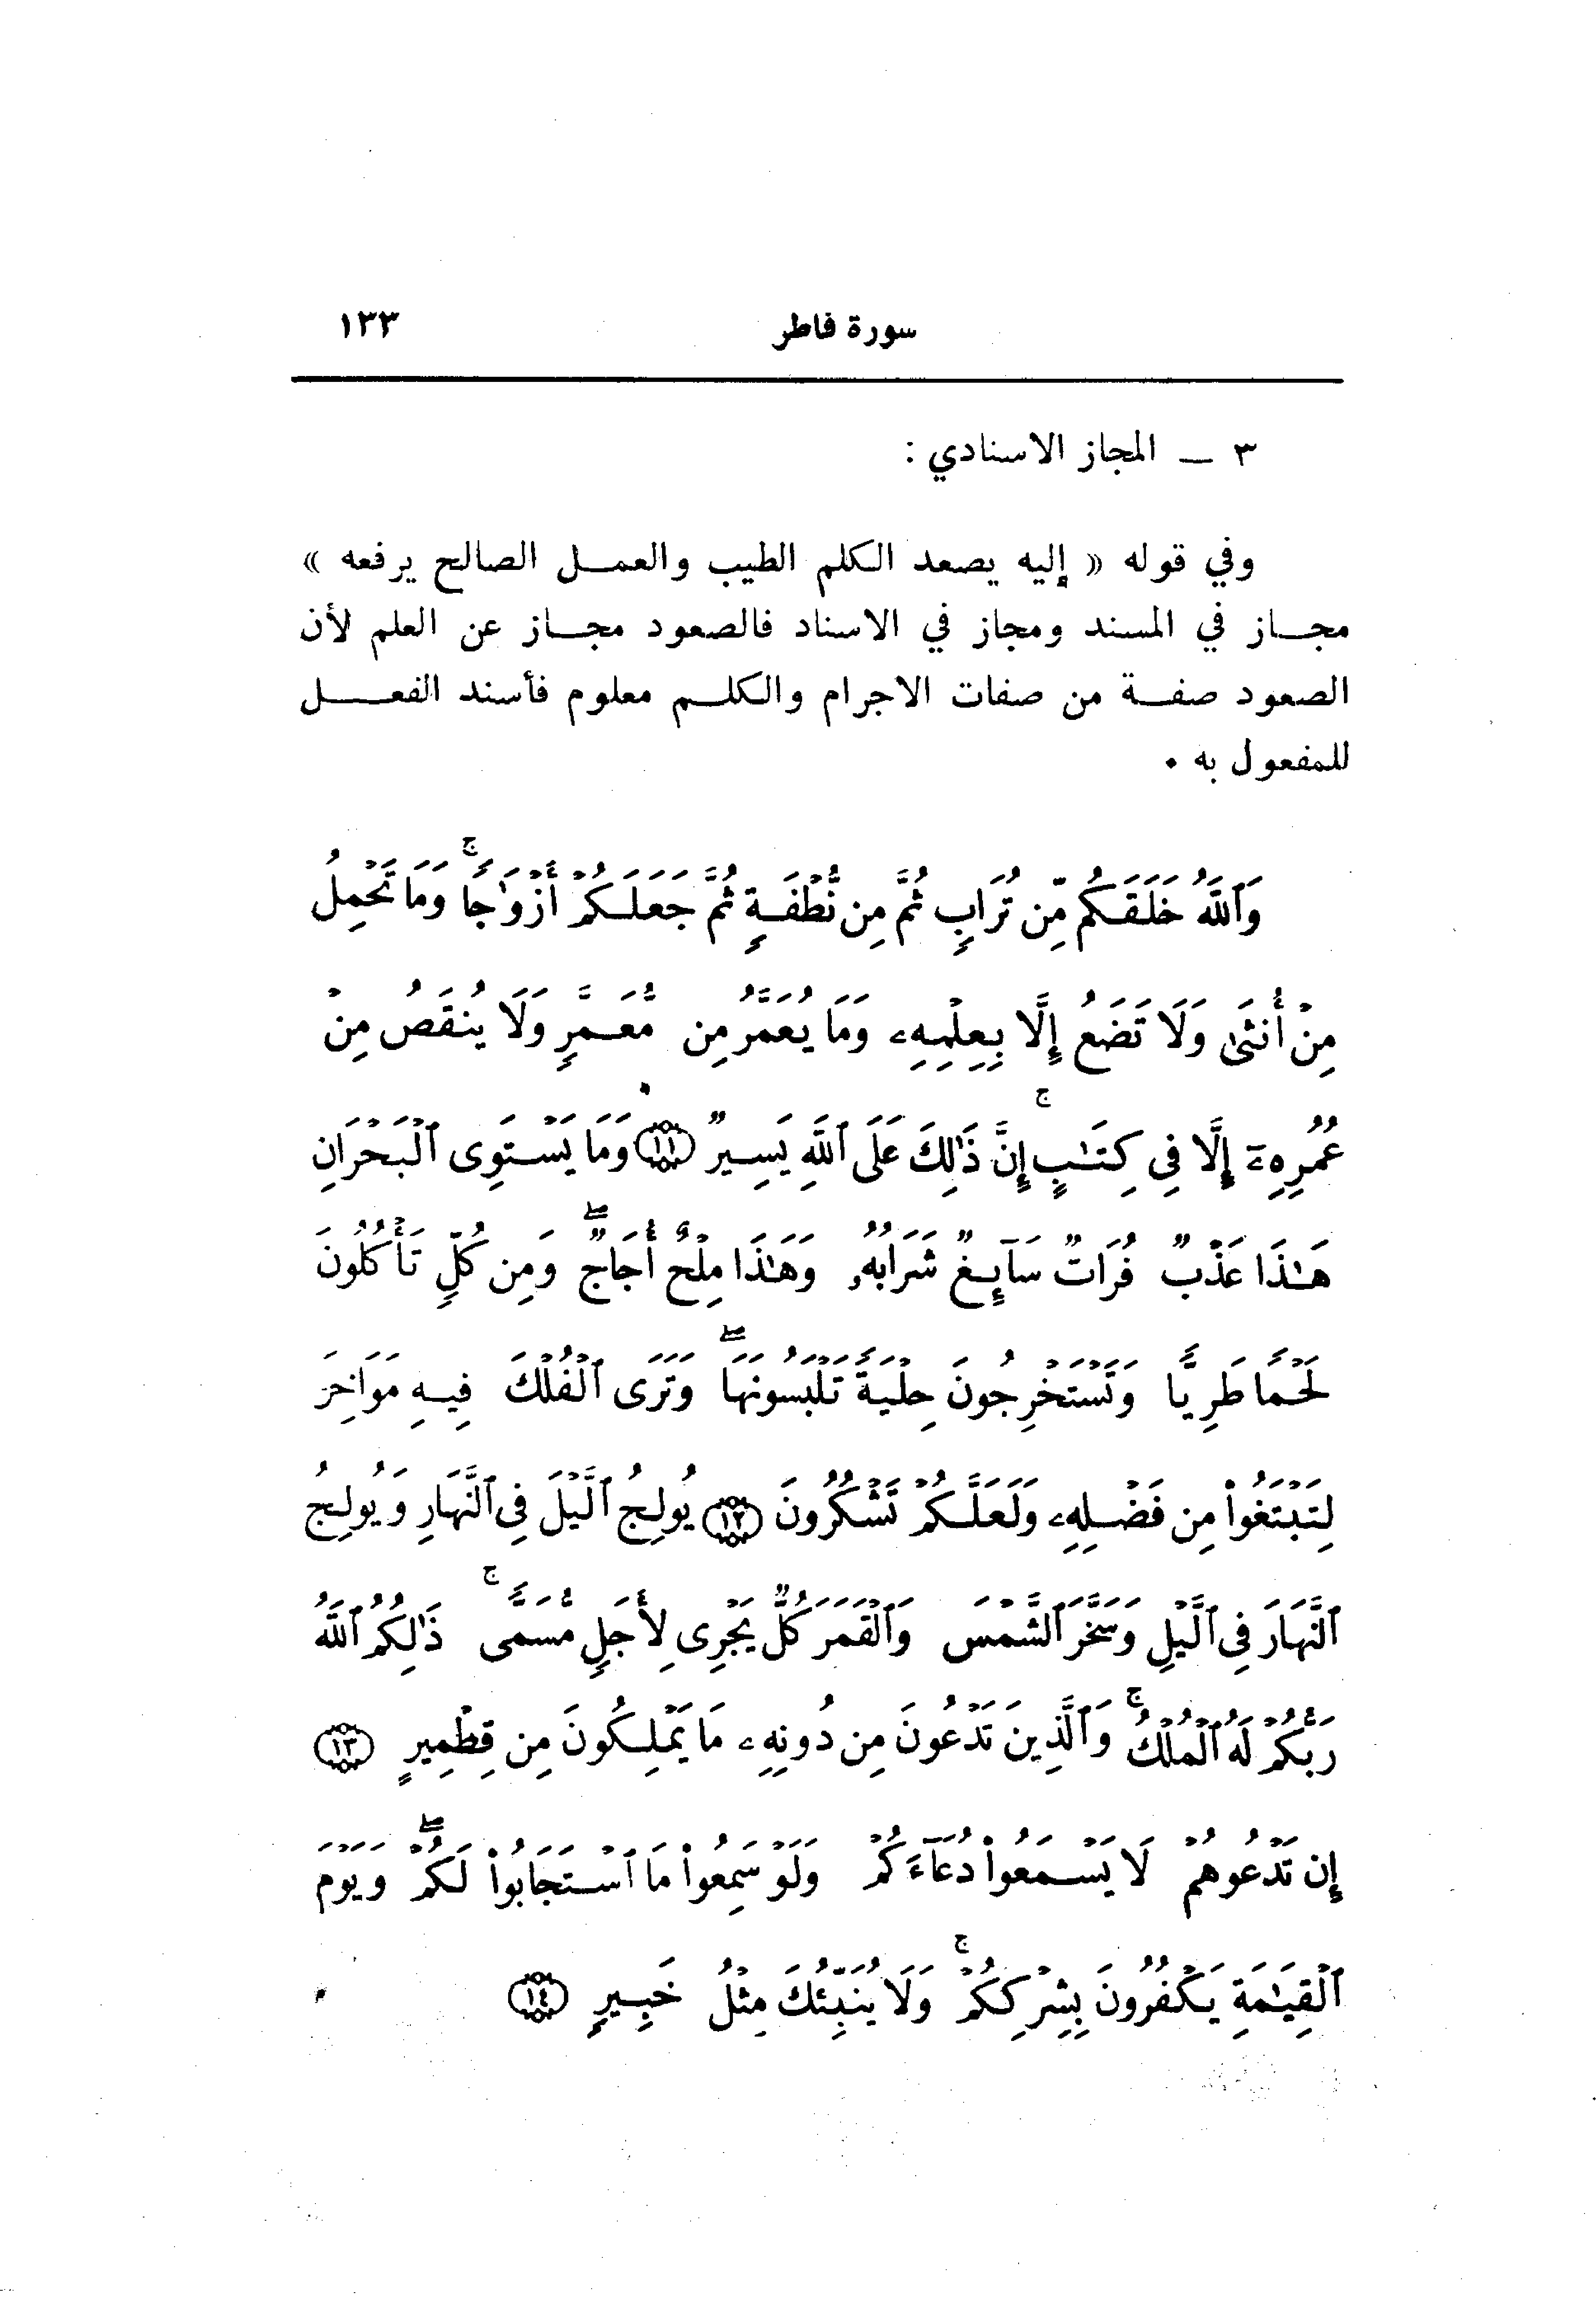 سورة فاطر ١٣٣
٣ ــ المجاز الاسنادي :
وفي قوله « إليه يصعد الكلم الطيب والعمــل الصالح يرفعه »
مجــاز في المسند ومجاز في الاسناد فالصعود مجــاز عن العلم لأن
الصعود صفــة من صفات الاجرام والكلــم معلوم فأسند الفعــــل
للمفعول به ٠
وَٱللَّهُ خَلَقَكُم مِّن تُرَابٍ ثُمَّ مِن نُّطْفَةٍ ثُمَّ جَعَلَكُمْ أَزْوَٰجًا ۚ وَمَا تَحْمِلُ
مِنْ أُنثَىٰ وَلَا تَضَعُ إِلَّا بِعِلْمِهِۦ وَمَا يُعَمَّرُ مِن مُّعَمَّرٍ وَلَا يُنقَصُ مِنْ
عُمُرِهِۦٓ إِلَّا فِى كِتَٰبٍ ۚ إِنَّ ذَٰلِكَ عَلَى ٱللَّهِ يَسِيرٌ ﴿١١﴾ وَمَا يَسْتَوِى ٱلْبَحْرَانِ
هَٰذَا عَذْبٌ فُرَاتٌ سَآئِغٌ شَرَابُهُۥ وَهَٰذَا مِلْحٌ أُجَاجٌ ۖ وَمِن كُلٍّ تَأْكُلُونَ
لَحْمًا طَرِيًّا وَتَسْتَخْرِجُونَ حِلْيَةً تَلْبَسُونَهَا ۖ وَتَرَى ٱلْفُلْكَ فِيهِ مَوَاخِرَ
لِتَبْتَغُوا۟ مِن فَضْلِهِۦ وَلَعَلَّكُمْ تَشْكُرُونَ ﴿١٢﴾ يُولِجُ ٱلَّيْلَ فِى ٱلنَّهَارِ وَيُولِجُ
ٱلنَّهَارَ فِى ٱلَّيْلِ وَسَخَّرَ ٱلشَّمْسَ وَٱلْقَمَرَ كُلٌّ يَجْرِى لِأَجَلٍ مُّسَمًّى ۚ ذَٰلِكُمُ ٱللَّهُ
رَبُّكُمْ لَهُ ٱلْمُلْكُ ۚ وَٱلَّذِينَ تَدْعُونَ مِن دُونِهِۦ مَا يَمْلِكُونَ مِن قِطْمِيرٍ ﴿١٣﴾
إِن تَدْعُوهُمْ لَا يَسْمَعُوا۟ دُعَآءَكُمْ وَلَوْ سَمِعُوا۟ مَا ٱسْتَجَابُوا۟ لَكُمْ ۖ وَيَوْمَ
ٱلْقِيَٰمَةِ يَكْفُرُونَ بِشِرْكِكُمْ ۚ وَلَا يُنَبِّئُكَ مِثْلُ خَبِيرٍ ﴿١٤﴾